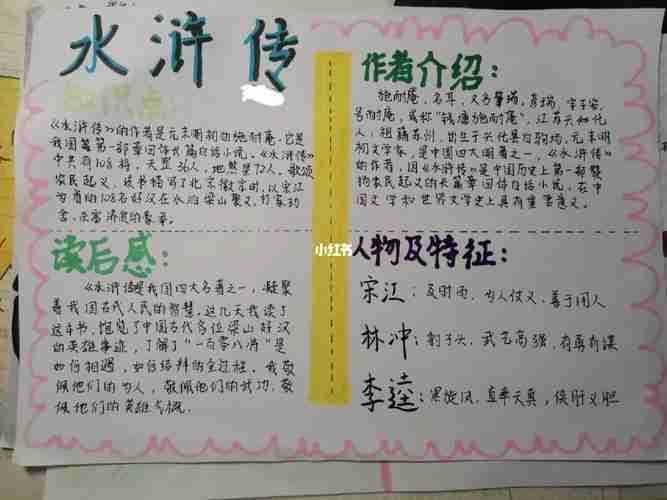 水浒传
知识点：
《水浒传》的作者是元末明初的施耐庵。它是
我国第一部章回体长篇白话小说。《水浒传》
中共有108将，天罡36人，地煞星72人，歌颂
农民起义，该书描写了北宋徽宗时，以宋江
为首的108名好汉在水泊梁山聚义，打家劫
舍，杀富济贫的豪举。
作者介绍：
施耐庵，名耳，又名肇瑞，彦端，字子安，
号耐庵，或称“钱塘施耐庵”，江苏兴化
人，祖籍苏州，出生于兴化县白驹场，元末明
初文学家，是中国四大名著之一，《水浒传》
的作者，因《水浒传》是中国历史上第一部赞
扬农民起义的长篇章回体白话小说，在中
国文学和世界文学史上具有重要意义。
读后感：
《水浒传》是我国四大名著之一，凝聚
着我国古代人民的智慧，这几天我读了
这本书，饱览了中国古代多位梁山好汉
的英雄事迹，了解了“一百零八将”是
如何相遇，如何结拜的全过程。我敬
佩他们的为人，敬佩他们的武功，敬
佩他们的英雄气概。
小红书
人物及特征：
宋江：及时雨，为人仗义、善于用人
林冲：豹子头，武艺高强，有勇有谋
李逵：黑旋风，直率天真，侠肝义胆